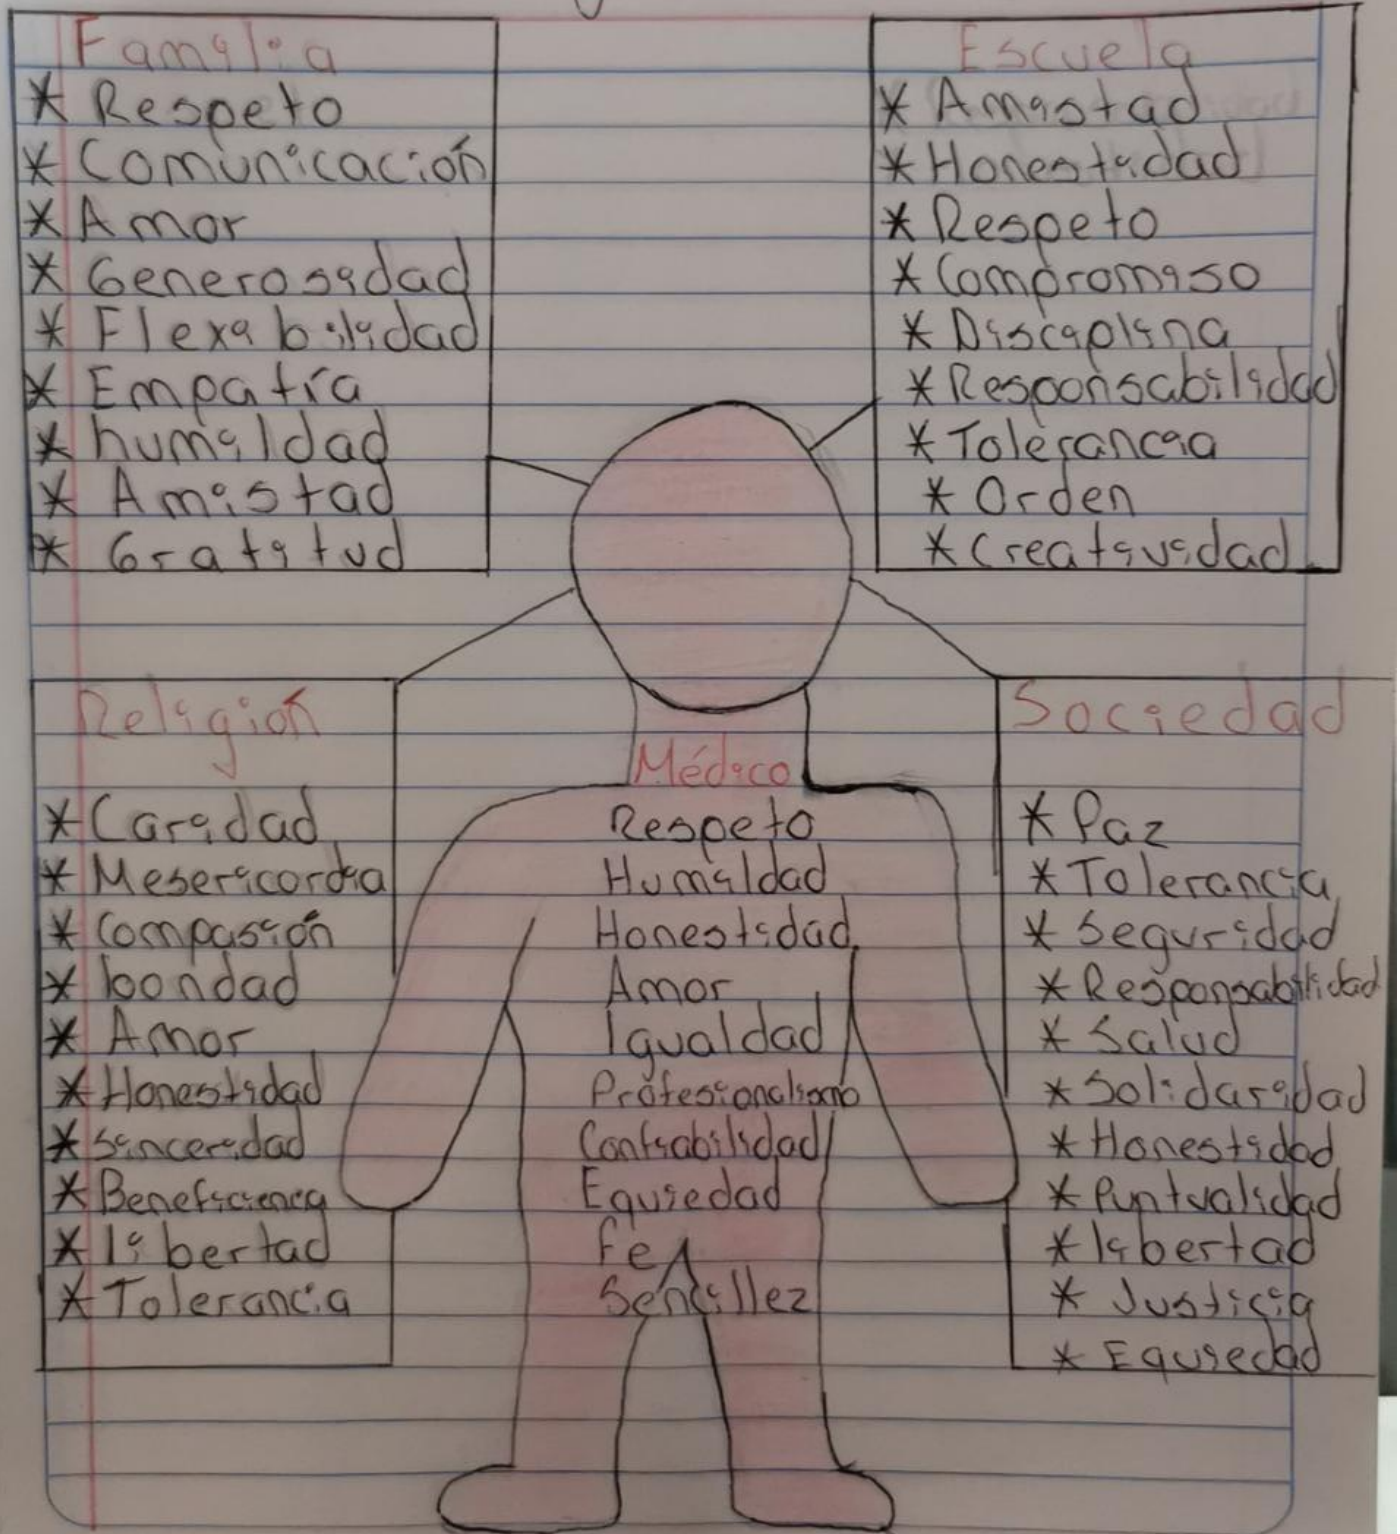 Familia
* Respeto
* Comunicación
* Amor
* Generosidad
* Flexibilidad
* Empatía
* humildad
* Amistad
* Gratitud
Escuela
* Amistad
* Honestidad
* Respeto
* Compromiso
* Disciplina
* Responsabilidad
* Tolerancia
* Orden
* Creatividad
Religión
* Caridad
* Mesericordia
* Compasión
* bondad
* Amor
* Honestidad
* Sinceridad
* Beneficiencia
* libertad
* Tolerancia
Médico
Respeto
Humildad
Honestidad
Amor
Igualdad
Profesionalismo
Confiabilidad
Equiedad
Fe
Sencillez
Sociedad
* Paz
* Tolerancia
* Seguridad
* Responsabilidad
* Salud
* Solidaridad
* Honestidad
* Puntualidad
* libertad
* Justicia
* Equiedad